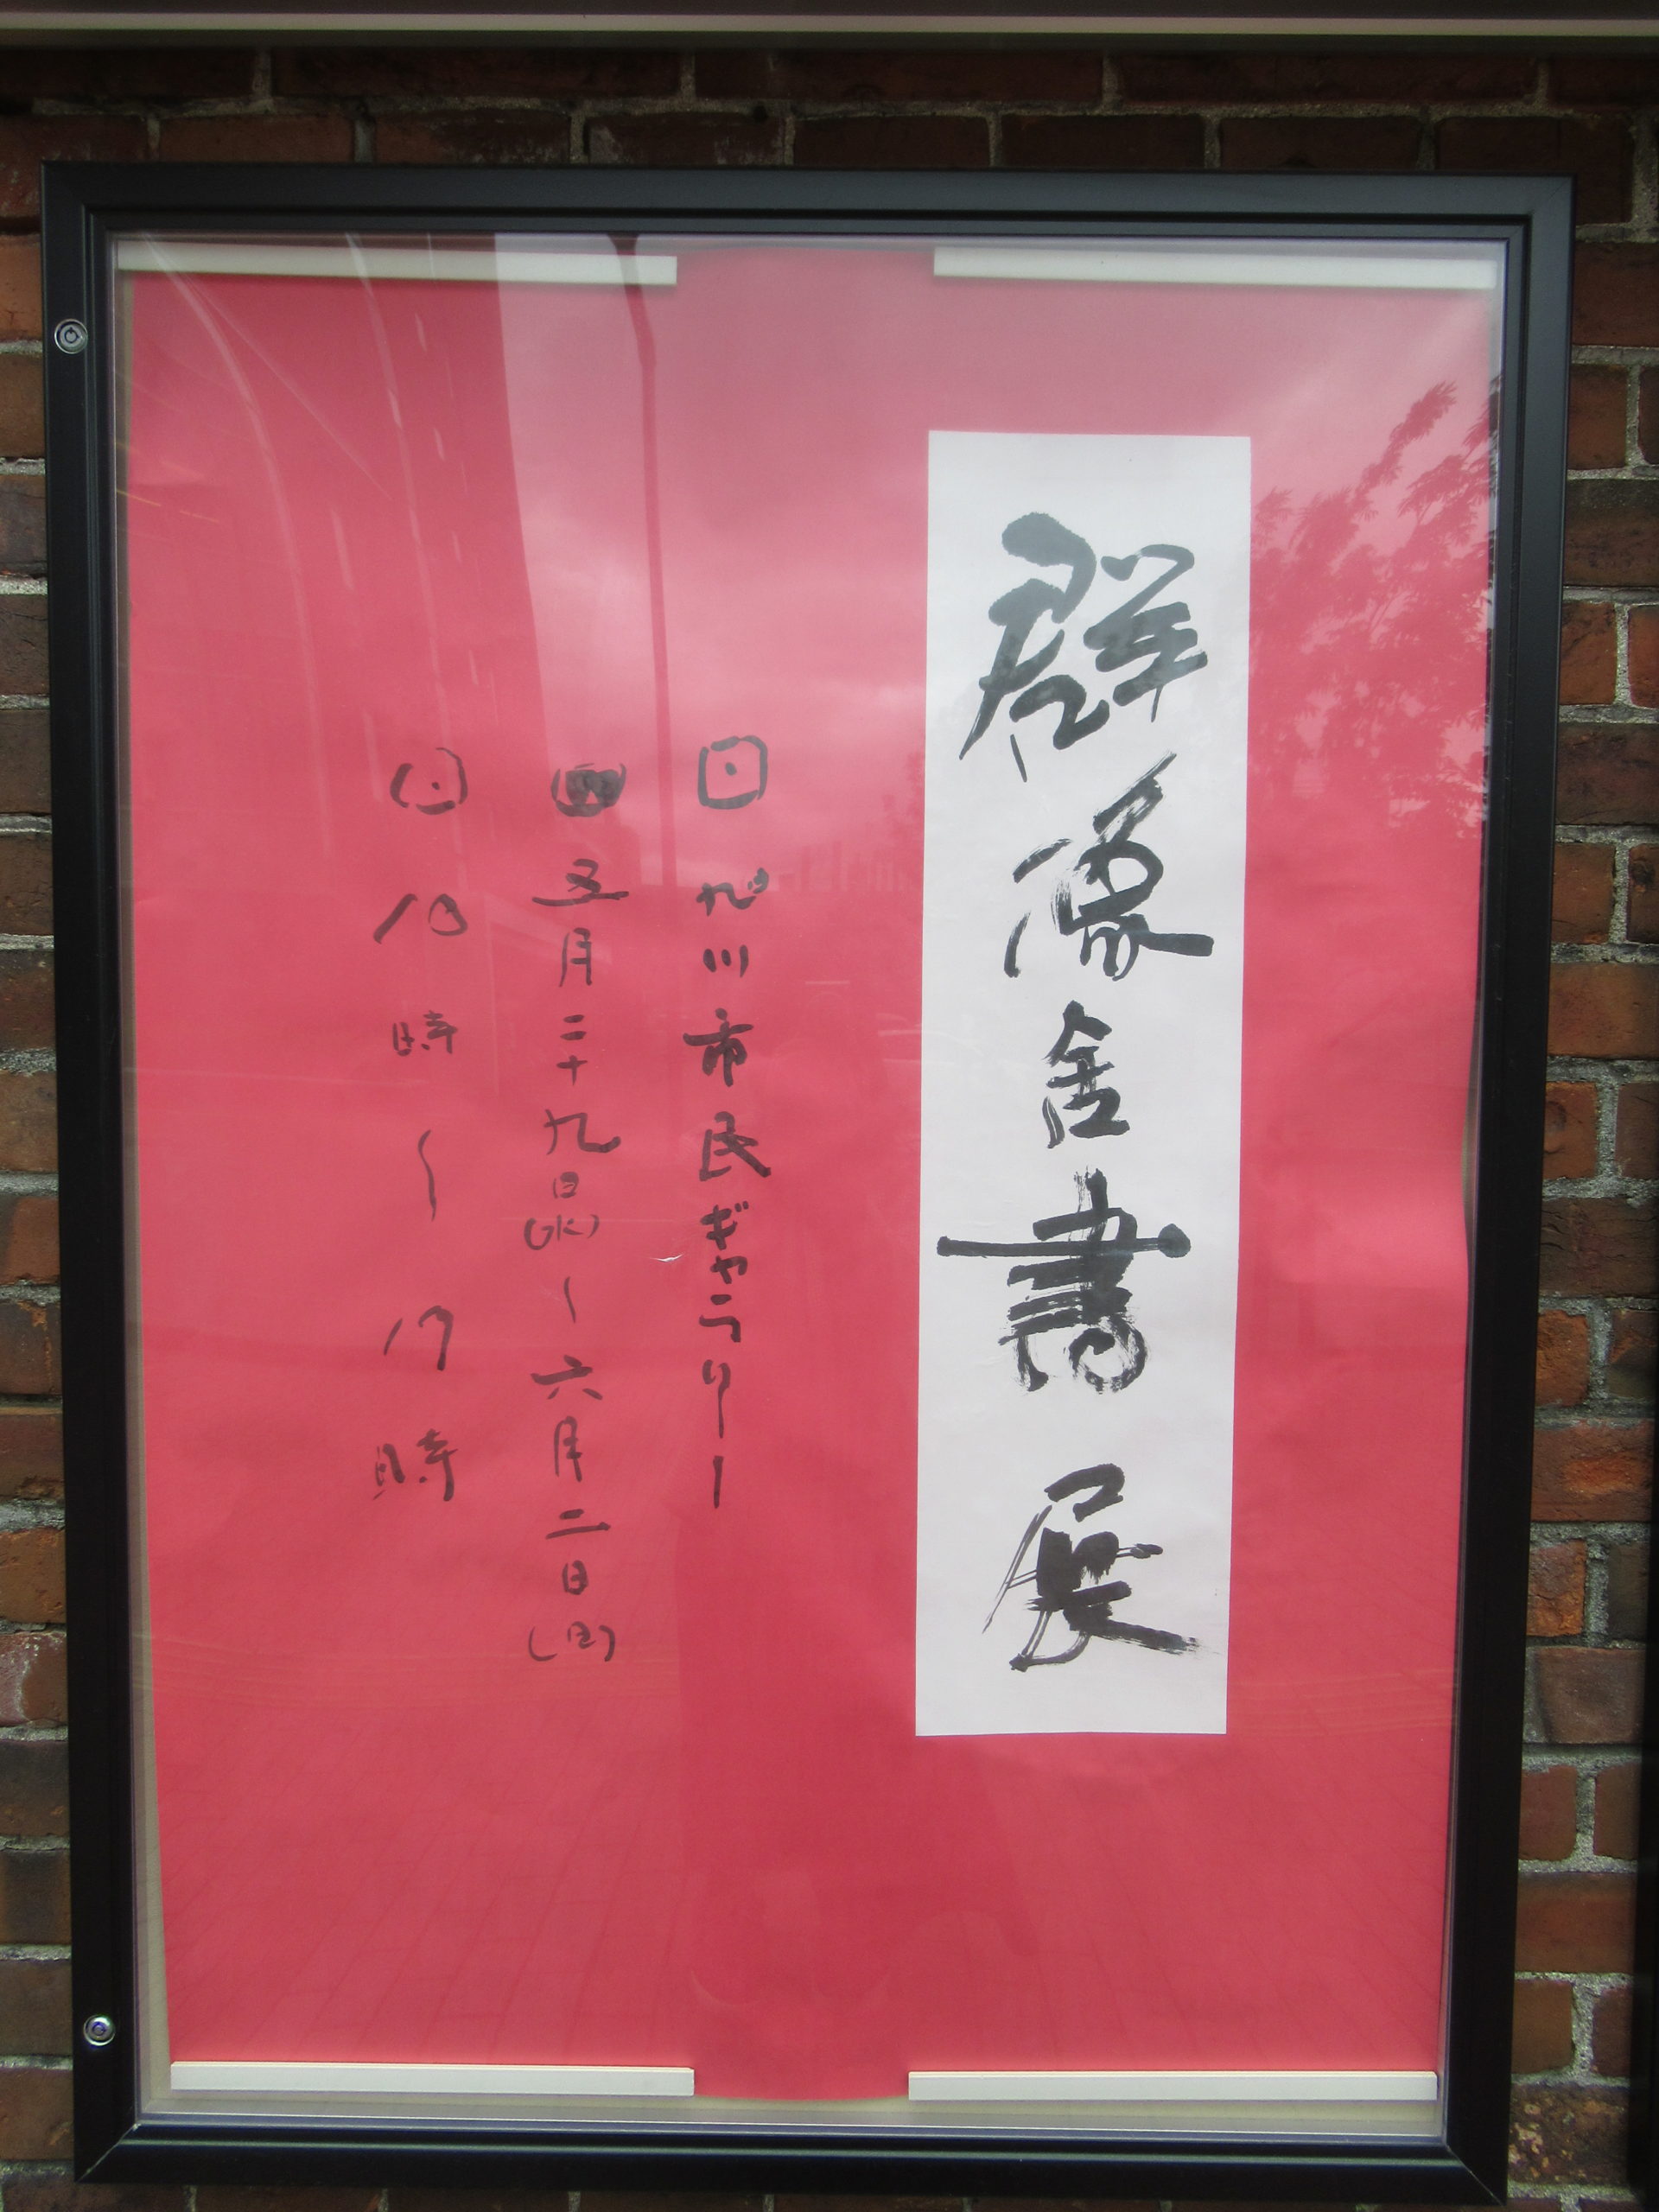 群像舎書展
旭川市民ギャラリー
五月二十九日(水)〜六月二日(日)
10時〜17時